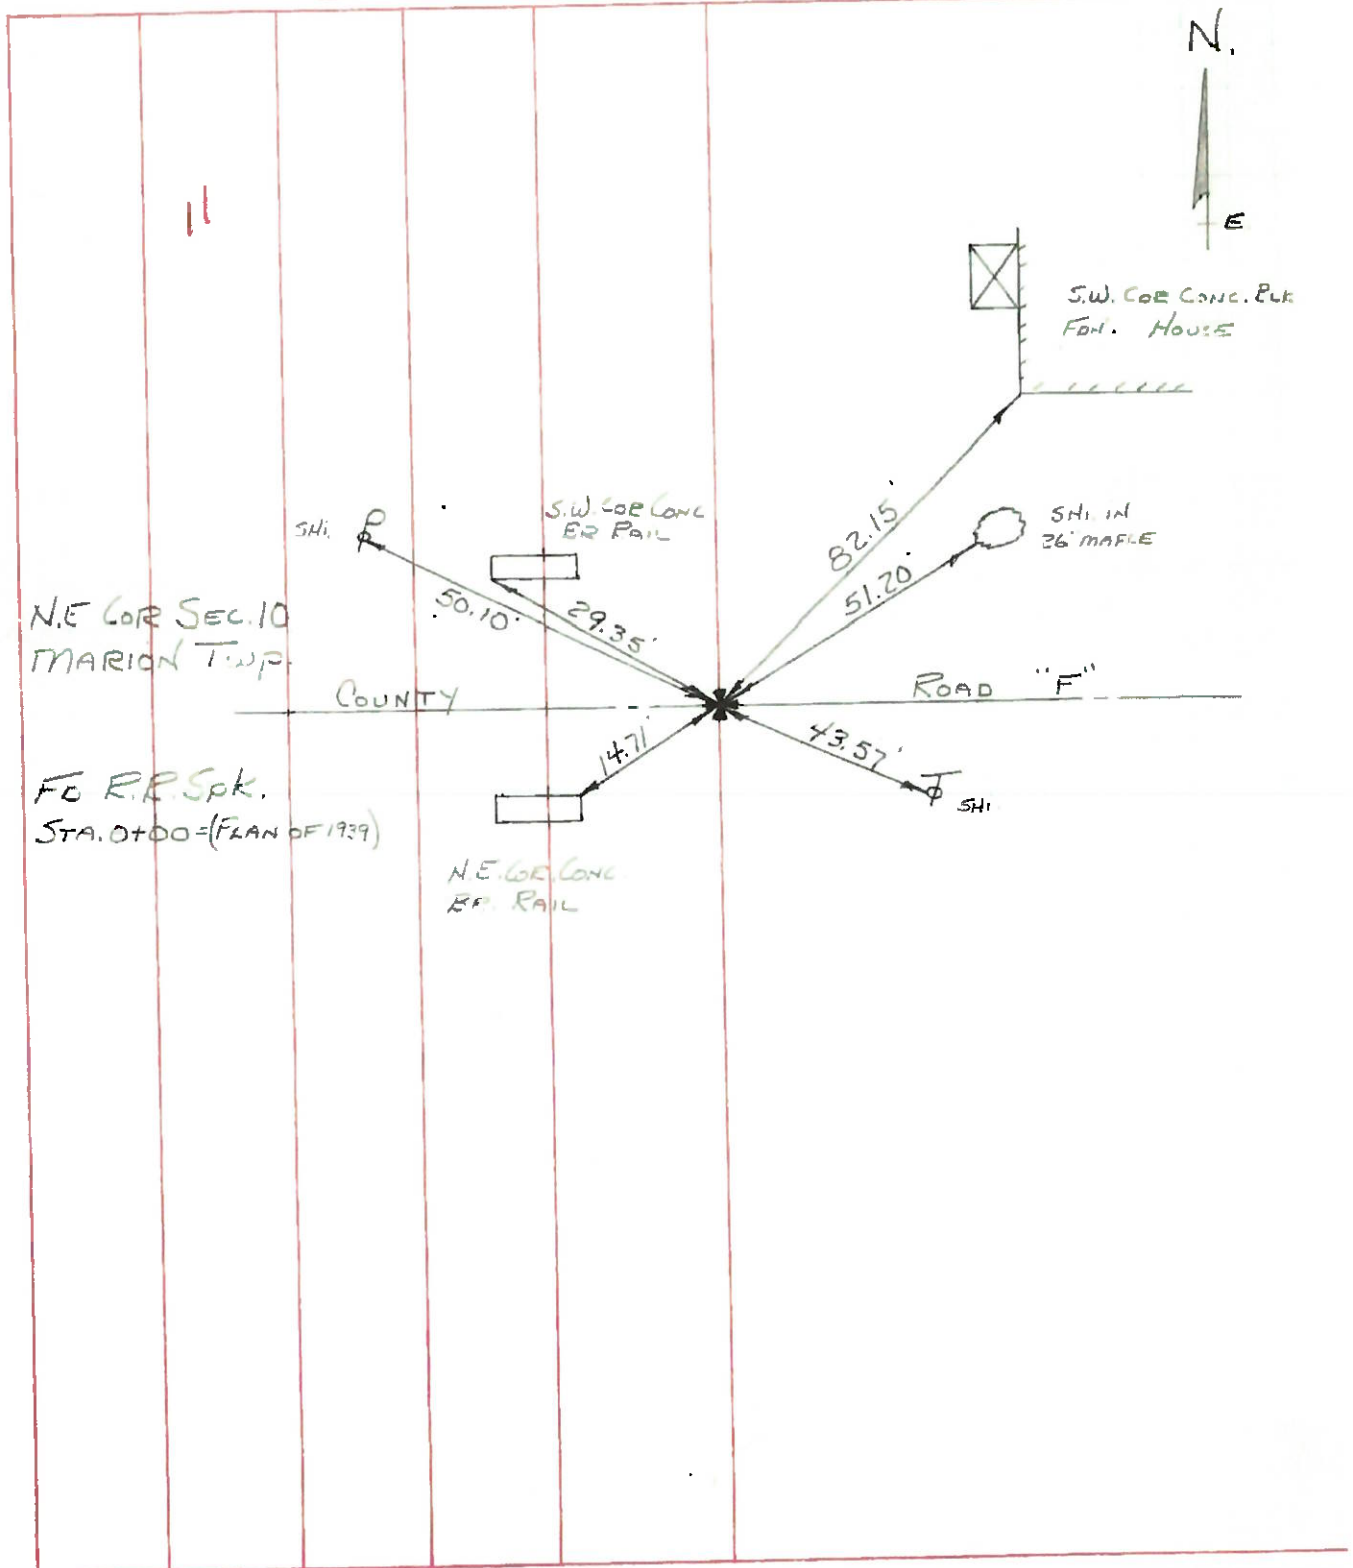 N.
11
E
S.W. COR CONC. BLK
FDN. HOUSE
82.15'
S.W. COR CONC
BR RAIL
SHI.
SHI. IN
26" MAPLE
51.20'
50.10'
29.35'
N.E COR SEC. 10
MARION TWP.
COUNTY ROAD "F"
14.71'
43.57'
SHI
FD R.R. Spk.
STA. 0+00=(PLAN OF 1939)
N.E. COR. CONC.
BR. RAIL